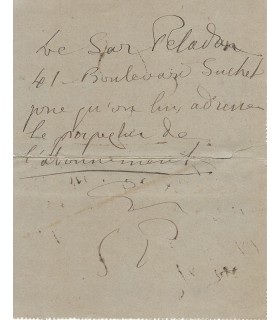 Le Sar Peladan
41 - Boulevard Suchet
prie qu'on lui adresse
le prospectus de
l'abonnement.
S. P.